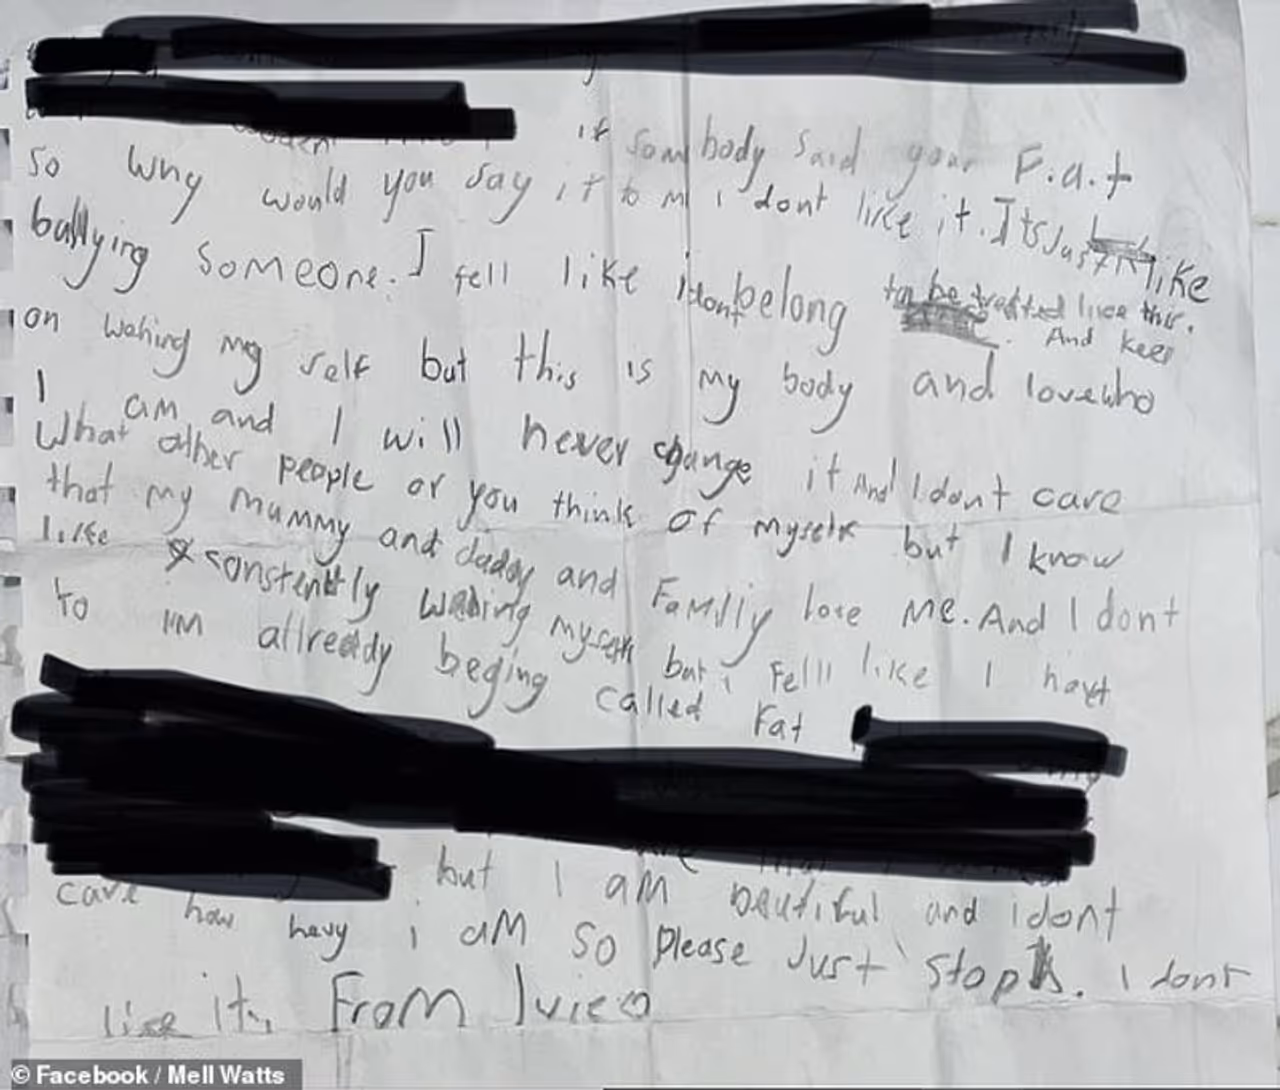 if sombody said your F.a.t
so why would you say it to m i dont like it. Its Just like
bullying someone. I fell like i dont belong to be treated like this.
And keep
on wahing my self but this is my body and love who
I am and I will never change it And I dont care
What other people or you think of myself but I know
that my mummy and daddy and Familly love me. And I dont
like constently wahing myself but i felll like I havt
to i'm allready beging called Fat
but I am beautiful and i dont
care how hevy i am so please Just stop. I dont
like it. From
© Facebook / Mell Watts